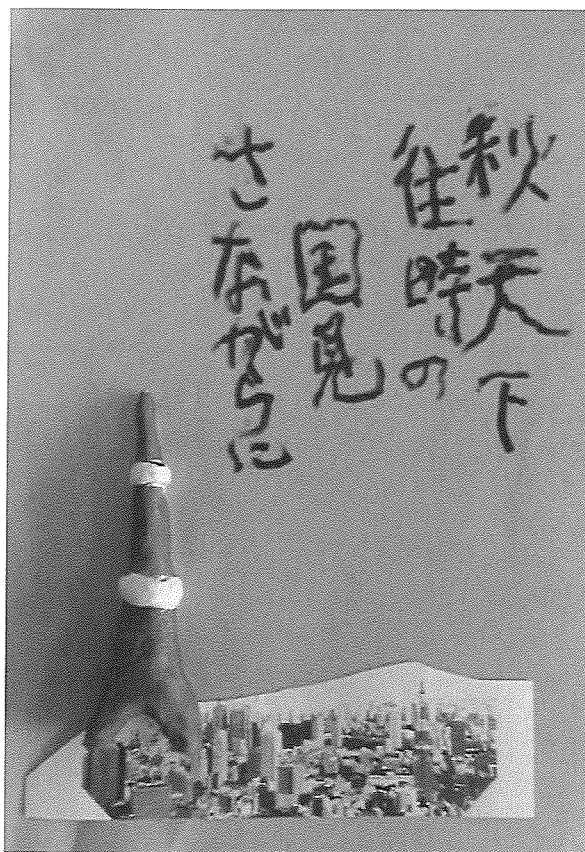 秋天下
往時の
国見
さながらに